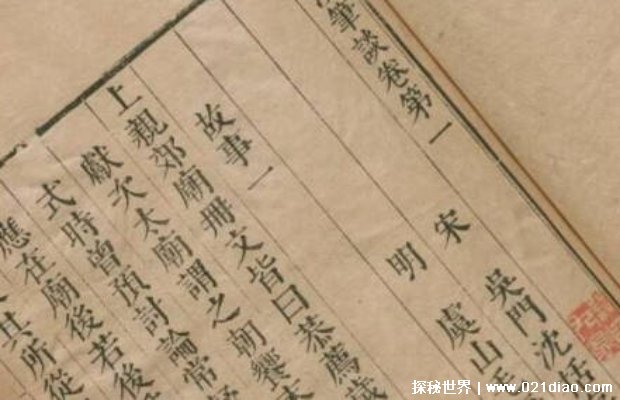 筆談卷第一
宋 吳門沈括
明 虞山毛
故事一
上親郊廟冊文皆曰恭薦歲
獻次太廟謂之朝饗末
式時曾預討論常疑
應在廟後若後
其所從
探秘世界 | www.021diao.com